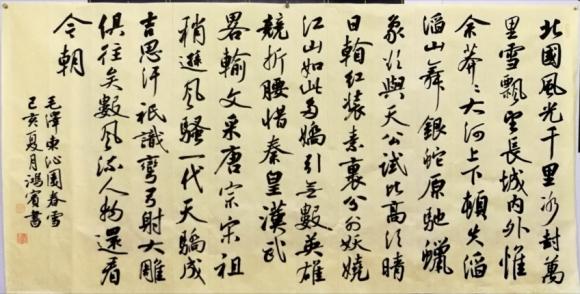 北國風光千里冰封萬
里雪飄望長城內外惟
余莽〻大河上下頓失滔
滔山舞銀蛇原馳蠟
象欲與天公試比高須晴
日看红裝素裹分外妖嬈
江山如此多嬌引无數英雄
競折腰惜秦皇漢武
畧輸文采唐宗宋祖
稍遜風騷一代天驕成
吉思汗祇識彎弓射大雕
俱往矣數風流人物還看
今朝
毛澤東沁園春雪
己亥夏月鴻賓書